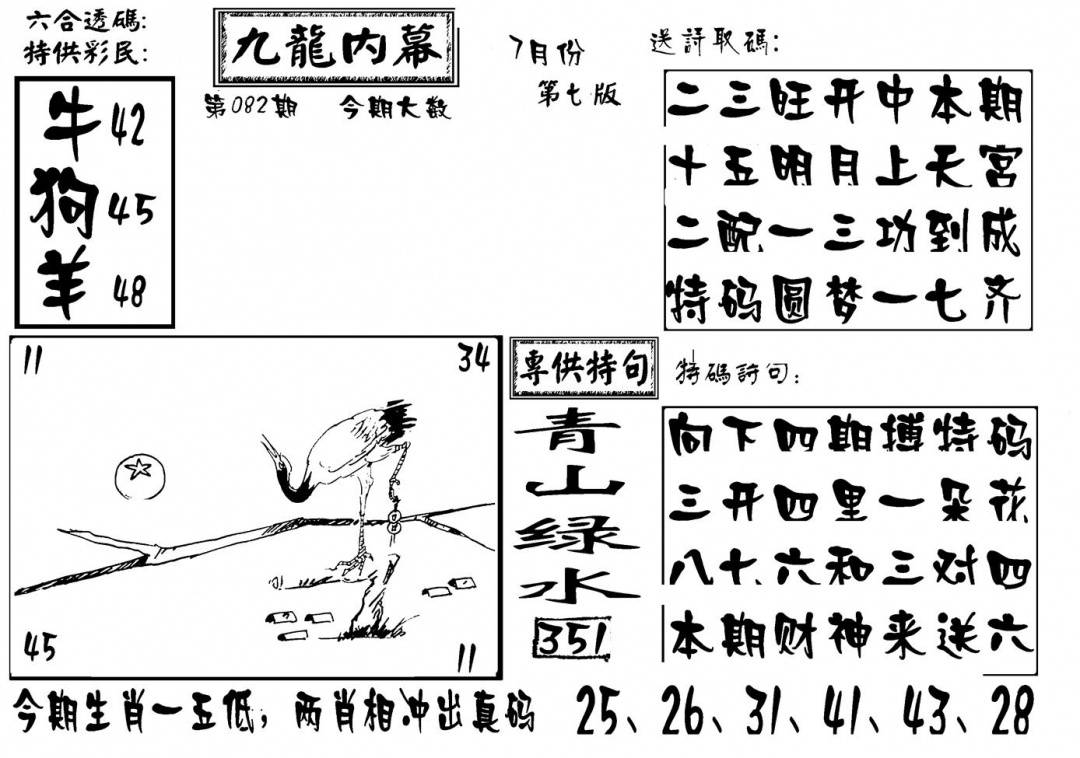 六合透碼:
特供彩民:
牛 42
狗 45
羊 48
九龍内幕
第082期 今期大数
7月份
第七版
送詩取碼:
二三旺开中本期
十五明月上天宫
二配一三功到成
特码圆梦一七齐
11 34
45 11
專供特句
青山绿水
351
特碼詩句:
向下四期搏特码
三开四里一朵花
八十六和三对四
本期财神来送六
今期生肖一五低,两肖相冲出真码 25、26、31、41、43、28